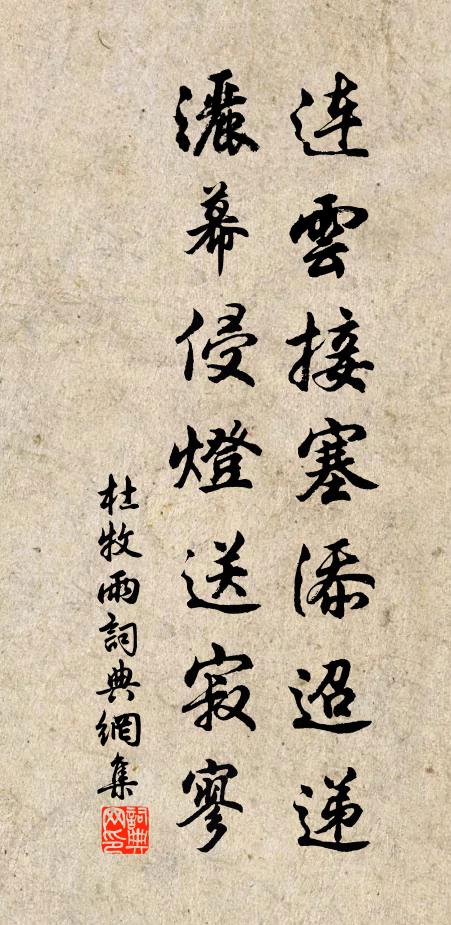 連雲接塞添迢递
灑幕侵燈送寂寥
杜牧雨詞典網集
詞典
网印